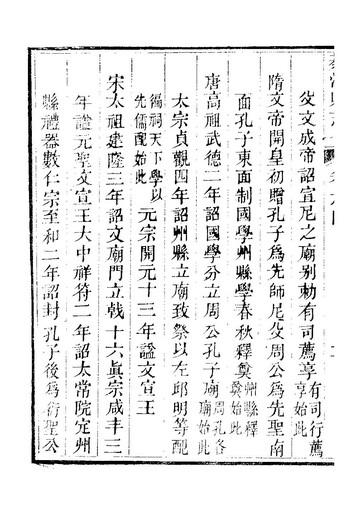 文成帝詔宣尼之廟别勅有司薦享有司行薦享始此
隋文帝開皇初贈孔子爲先師尼父周公爲先聖南
面孔子東面制國學州縣學春秋釋奠州縣釋奠始此
唐高祖武德二年詔國學分立周公孔子廟周孔各廟始此
太宗貞觀四年詔州縣立廟致祭以左邱明等配
徧祠天下學以先儒配始此元宗開元十三年謚文宣王
宋太祖建隆三年詔文廟門立戟十六眞宗咸丰三
年謚元聖文宣王大中祥符二年詔太常院定州
縣禮器數仁宗至和二年詔封孔子後爲衍聖公